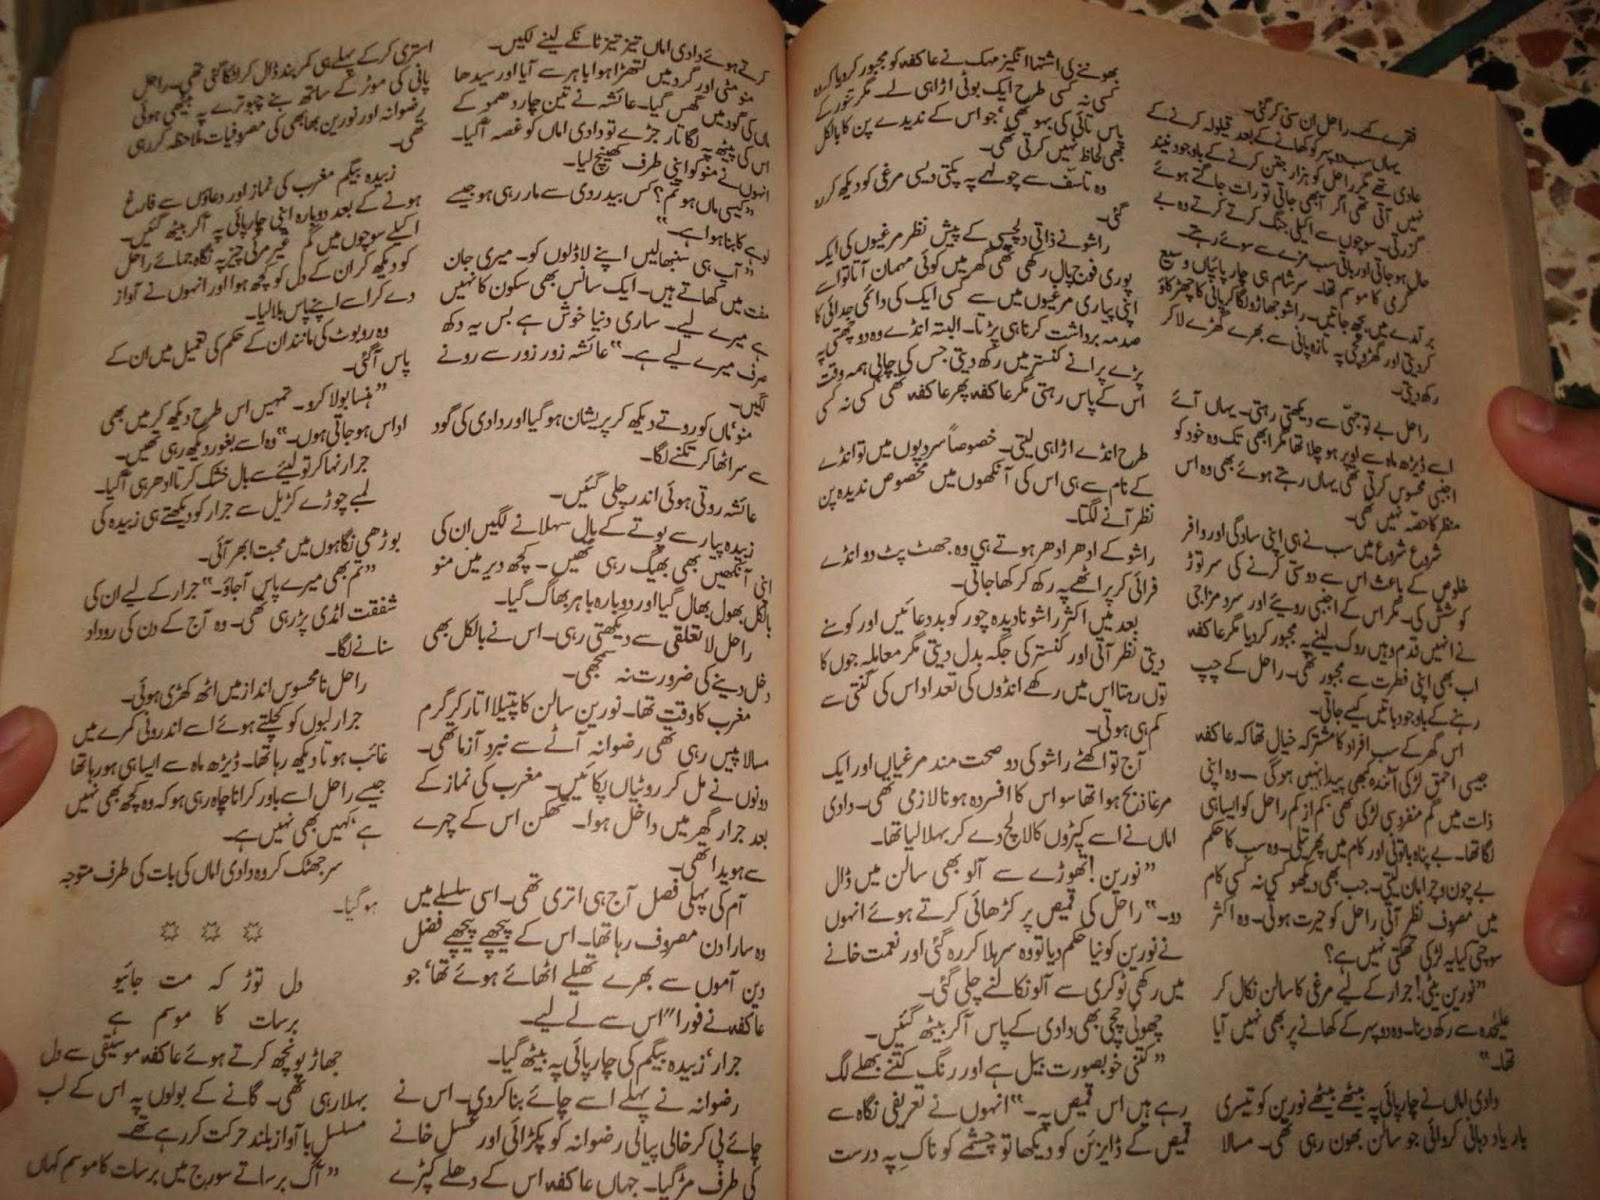 فقرے کہے۔ راحل ان سنی کر گئی۔
یہاں سب دوپہر کو کھانے کے بعد قیلولہ کرنے کے
عادی تھے مگر راحل کو ہزار جتن کرنے کے باوجود نیند
نہیں آتی تھی اگر آ بھی جاتی تو رات جاگتے ہوئے
گزرتی۔ سوچوں سے اکیلی جنگ کرتے کرتے وہ بے
حال ہو جاتی اور باقی سب مزے سے سوئے رہتے۔
گرمی کا موسم تھا۔ سرشام ہی چارپائیاں وسیع
برآمدے میں بچھ جاتیں۔ راشو جھاڑو لگا کر پانی کا چھڑکاؤ
کر دیتی اور گھڑونچی پہ تازہ پانی سے بھرے گھڑے لا کر
رکھ دیتی۔
راحل بے توجہی سے دیکھتی رہتی۔ یہاں آئے
اسے ڈیڑھ ماہ سے اوپر ہو چلا تھا مگر ابھی تک وہ خود کو
اجنبی محسوس کرتی تھی یہاں رہتے ہوئے بھی وہ اس
منظر کا حصہ نہیں تھی۔
شروع شروع میں سب نے ہی اپنی سادگی اور وافر
خلوص کے باعث اس سے دوستی کرنے کی سر توڑ
کوشش کی۔ مگر اس کے اجنبی رویے اور سرد مزاجی
نے انہیں قدم وہیں روک لینے پہ مجبور کر دیا مگر عاکفہ
اب بھی اپنی فطرت سے مجبور تھی۔ راحل کے چپ
رہنے کے باوجود باتیں کیے جاتی۔
اس گھر کے سب افراد کا مشترکہ خیال تھا کہ عاکفہ
جیسی احمق لڑکی آئندہ کبھی پیدا نہیں ہو گی — وہ اپنی
ذات میں گم منفرد سی لڑکی تھی، کم از کم راحل کو ایسا ہی
لگا تھا۔ بے پناہ باتونی اور کام میں پھرتیلی۔ وہ سب کا حکم
بے چون و چرا مان لیتی۔ جب بھی دیکھو کسی نہ کسی کام
میں مصروف نظر آتی راحل کو حیرت ہوتی۔ وہ اکثر
سوچتی کیا یہ لڑکی تھکتی نہیں ہے؟
”نورین بیٹی! جرار کے لیے مرغی کا سالن نکال کر
علیحدہ سے رکھ دینا۔ وہ دوپہر کے کھانے پر بھی نہیں آیا
تھا۔“
دادی اماں نے چارپائی پہ بیٹھے بیٹھے نورین کو تیسری
بار یاد دہانی کروائی جو سالن بھون رہی تھی۔ مسالا
بھوننے کی اشتہا انگیز مہک نے عاکفہ کو مجبور کر دیا کہ وہ
کسی نہ کسی طرح ایک بوٹی اڑا ہی لے۔ مگر تنور کے
پاس تائی کی بہو تھی، جو اس کے ندیدے پن کا بالکل
بھی لحاظ نہیں کرتی تھی۔
وہ تاسف سے چولہے پہ پکتی دیسی مرغی کو دیکھ کر رہ
گئی۔
راشو نے ذاتی دلچسپی کے پیش نظر مرغیوں کی ایک
پوری فوج پال رکھی تھی گھر میں کوئی مہمان آتا تو اسے
اپنی پیاری مرغیوں میں سے کسی ایک کی دائمی جدائی کا
صدمہ برداشت کرنا ہی پڑتا۔ البتہ انڈے وہ دو چھتی پہ
پڑے پرانے کنستر میں رکھ دیتی جس کی چابی ہمہ وقت
اس کے پاس رہتی مگر عاکفہ پھر عاکفہ تھی کسی نہ کسی
طرح انڈے اڑا ہی لیتی۔ خصوصاً سردیوں میں تو انڈے
کے نام سے ہی اس کی آنکھوں میں مخصوص ندیدہ پن
نظر آنے لگتا۔
راشو کے ادھر ادھر ہوتے ہی وہ جھٹ پٹ دو انڈے
فرائی کر پراٹھے پہ رکھ کر کھا جاتی۔
بعد میں اکثر راشو نادیدہ چور کو بددعائیں اور کوسنے
دیتی نظر آتی اور کنستر کی جگہ بدل دیتی مگر معاملہ جوں کا
توں رہتا اس میں رکھے انڈوں کی تعداد اس کی گنتی سے
کم ہی ہوتی۔
آج تو اکٹھے راشو کی دو صحت مند مرغیاں اور ایک
مرغا ذبح ہوا تھا سو اس کا افسردہ ہونا لازمی تھی۔ دادی
اماں نے اسے کپڑوں کا لالچ دے کر بہلا لیا تھا۔
”نورین! تھوڑے سے آلو بھی سالن میں ڈال
دو۔“ راحل کی قمیص پر کڑھائی کرتے ہوئے انہوں
نے نورین کو نیا حکم دیا تو وہ سر ہلا کر رہ گئی اور نعمت خانے
میں رکھی ٹوکری سے آلو نکالنے چلی گئی۔
چھوٹی چچی بھی دادی کے پاس آ کر بیٹھ گئیں۔
”کتنی خوبصورت بیل ہے اور رنگ کتنے بھلے لگ
رہے ہیں اس قمیص پہ۔“ انہوں نے تعریفی نگاہ سے
قمیص کے ڈیزائن کو دیکھا تو چشمے کو ناک پہ درست
کرتے ہوئے دادی اماں تیز تیز ٹانکے لینے لگیں۔
منو مٹی اور گرد میں لتھڑا ہوا باہر سے آیا اور سیدھا
ماں کی گود میں گھس گیا۔ عائشہ نے تین چار دھمو کے
اس کی پیٹھ پہ لگاتار جڑے تو دادی اماں کو غصہ آ گیا۔
انہوں نے منو کو اپنی طرف کھینچ لیا۔
”کیسی ماں ہو تم؟ کس بیدردی سے مار رہی ہو جیسے
لوہے کا بنا ہوا ہے۔“
”آپ ہی سنبھالیں اپنے لاڈلوں کو۔ میری جان
مفت میں کھاتے ہیں۔ ایک سانس بھی سکون کا نہیں
ہے میرے لیے۔ ساری دنیا خوش ہے بس یہ دکھ
صرف میرے لیے ہے۔“ عائشہ زور زور سے رونے
لگیں۔
منو، ماں کو روتے دیکھ کر پریشان ہو گیا اور دادی کی گود
سے سر اٹھا کر تکنے لگا۔
عائشہ روتی ہوئی اندر چلی گئیں۔
زبیدہ پیار سے پوتے کے بال سہلانے لگیں ان کی
اپنی آنکھیں بھی بھیگ رہی تھیں۔ کچھ دیر میں منو
بالکل بھول بھال گیا اور دوبارہ باہر بھاگ گیا۔
راحل لاتعلقی سے دیکھتی رہی۔ اس نے بالکل بھی
دخل دینے کی ضرورت نہ سمجھی۔
مغرب کا وقت تھا۔ نورین سالن کا پتیلا اتار کر گرم
مسالا پیس رہی تھی رضوانہ آٹے سے نبرد آزما تھی۔
دونوں نے مل کر روٹیاں پکائیں۔ مغرب کی نماز کے
بعد جرار گھر میں داخل ہوا۔ تھکن اس کے چہرے
سے ہویدا تھی۔
آم کی پہلی فصل آج ہی اتری تھی۔ اسی سلسلے میں
وہ سارا دن مصروف رہا تھا۔ اس کے پیچھے پیچھے فضل
دین آموں سے بھرے تھیلے اٹھائے ہوئے تھا، جو
عاکفہ نے فوراً اس سے لے لیے۔
جرار، زبیدہ بیگم کی چارپائی پہ بیٹھ گیا۔
رضوانہ نے پہلے اسے چائے بنا کر دی۔ اس نے
چائے پی کر خالی پیالی رضوانہ کو پکڑائی اور غسل خانے
کی طرف مڑ گیا۔ جہاں عاکفہ اس کے دھلے کپڑے
استری کر کے پہلے ہی کمر بند ڈال کر لٹکا گئی تھی۔ راحل
پانی کی موٹر کے ساتھ بنے چبوترے پہ بیٹھی ہوئی
رضوانہ اور نورین بھابھی کی مصروفیات ملاحظہ کر رہی
تھی۔
زبیدہ بیگم مغرب کی نماز اور دعاؤں سے فارغ
ہونے کے بعد دوبارہ اپنی چارپائی پہ آ کر بیٹھ گئیں۔
اکیلے سوچوں میں گم غیر مرئی چیز پہ نگاہ جمائے راحل
کو دیکھ کر ان کے دل کو کچھ ہوا اور انہوں نے آواز
دے کر اسے اپنے پاس بلا لیا۔
وہ روبوٹ کی مانند ان کے حکم کی تعمیل میں ان کے
پاس آ گئی۔
”ہنسا بولا کرو۔ تمہیں اس طرح دیکھ کر میں بھی
اداس ہو جاتی ہوں۔“ وہ اسے بغور دیکھ رہی تھیں۔
جرار نہا کر تولیئے سے بال خشک کرتا ادھر ہی آ گیا۔
لمبے چوڑے کڑیل سے جرار کو دیکھتے ہی زبیدہ کی
بوڑھی نگاہوں میں محبت ابھر آئی۔
”تم بھی میرے پاس آ جاؤ۔“ جرار کے لیے ان کی
شفقت امڈی پڑ رہی تھی۔ وہ آج کے دن کی روداد
سنانے لگا۔
راحل نامحسوس انداز میں اٹھ کھڑی ہوئی۔
جرار لبوں کو کچلتے ہوئے اسے اندرونی کمرے میں
غائب ہوتا دیکھ رہا تھا۔ ڈیڑھ ماہ سے ایسا ہی ہو رہا تھا
جیسے راحل اسے باور کرانا چاہ رہی ہو کہ وہ کچھ بھی نہیں
ہے، کہیں بھی نہیں ہے۔
سر جھٹک کر وہ دادی اماں کی بات کی طرف متوجہ
ہو گیا۔
☼ ☼ ☼
دل توڑ کہ مت جائیو
برسات کا موسم ہے
جھاڑ پونچھ کرتے ہوئے عاکفہ موسیقی سے دل
بہلا رہی تھی۔ گانے کے بولوں پہ اس کے لب
مسلسل با آواز بلند حرکت کر رہے تھے۔
”آگ برساتے سورج میں برسات کا موسم کہاں